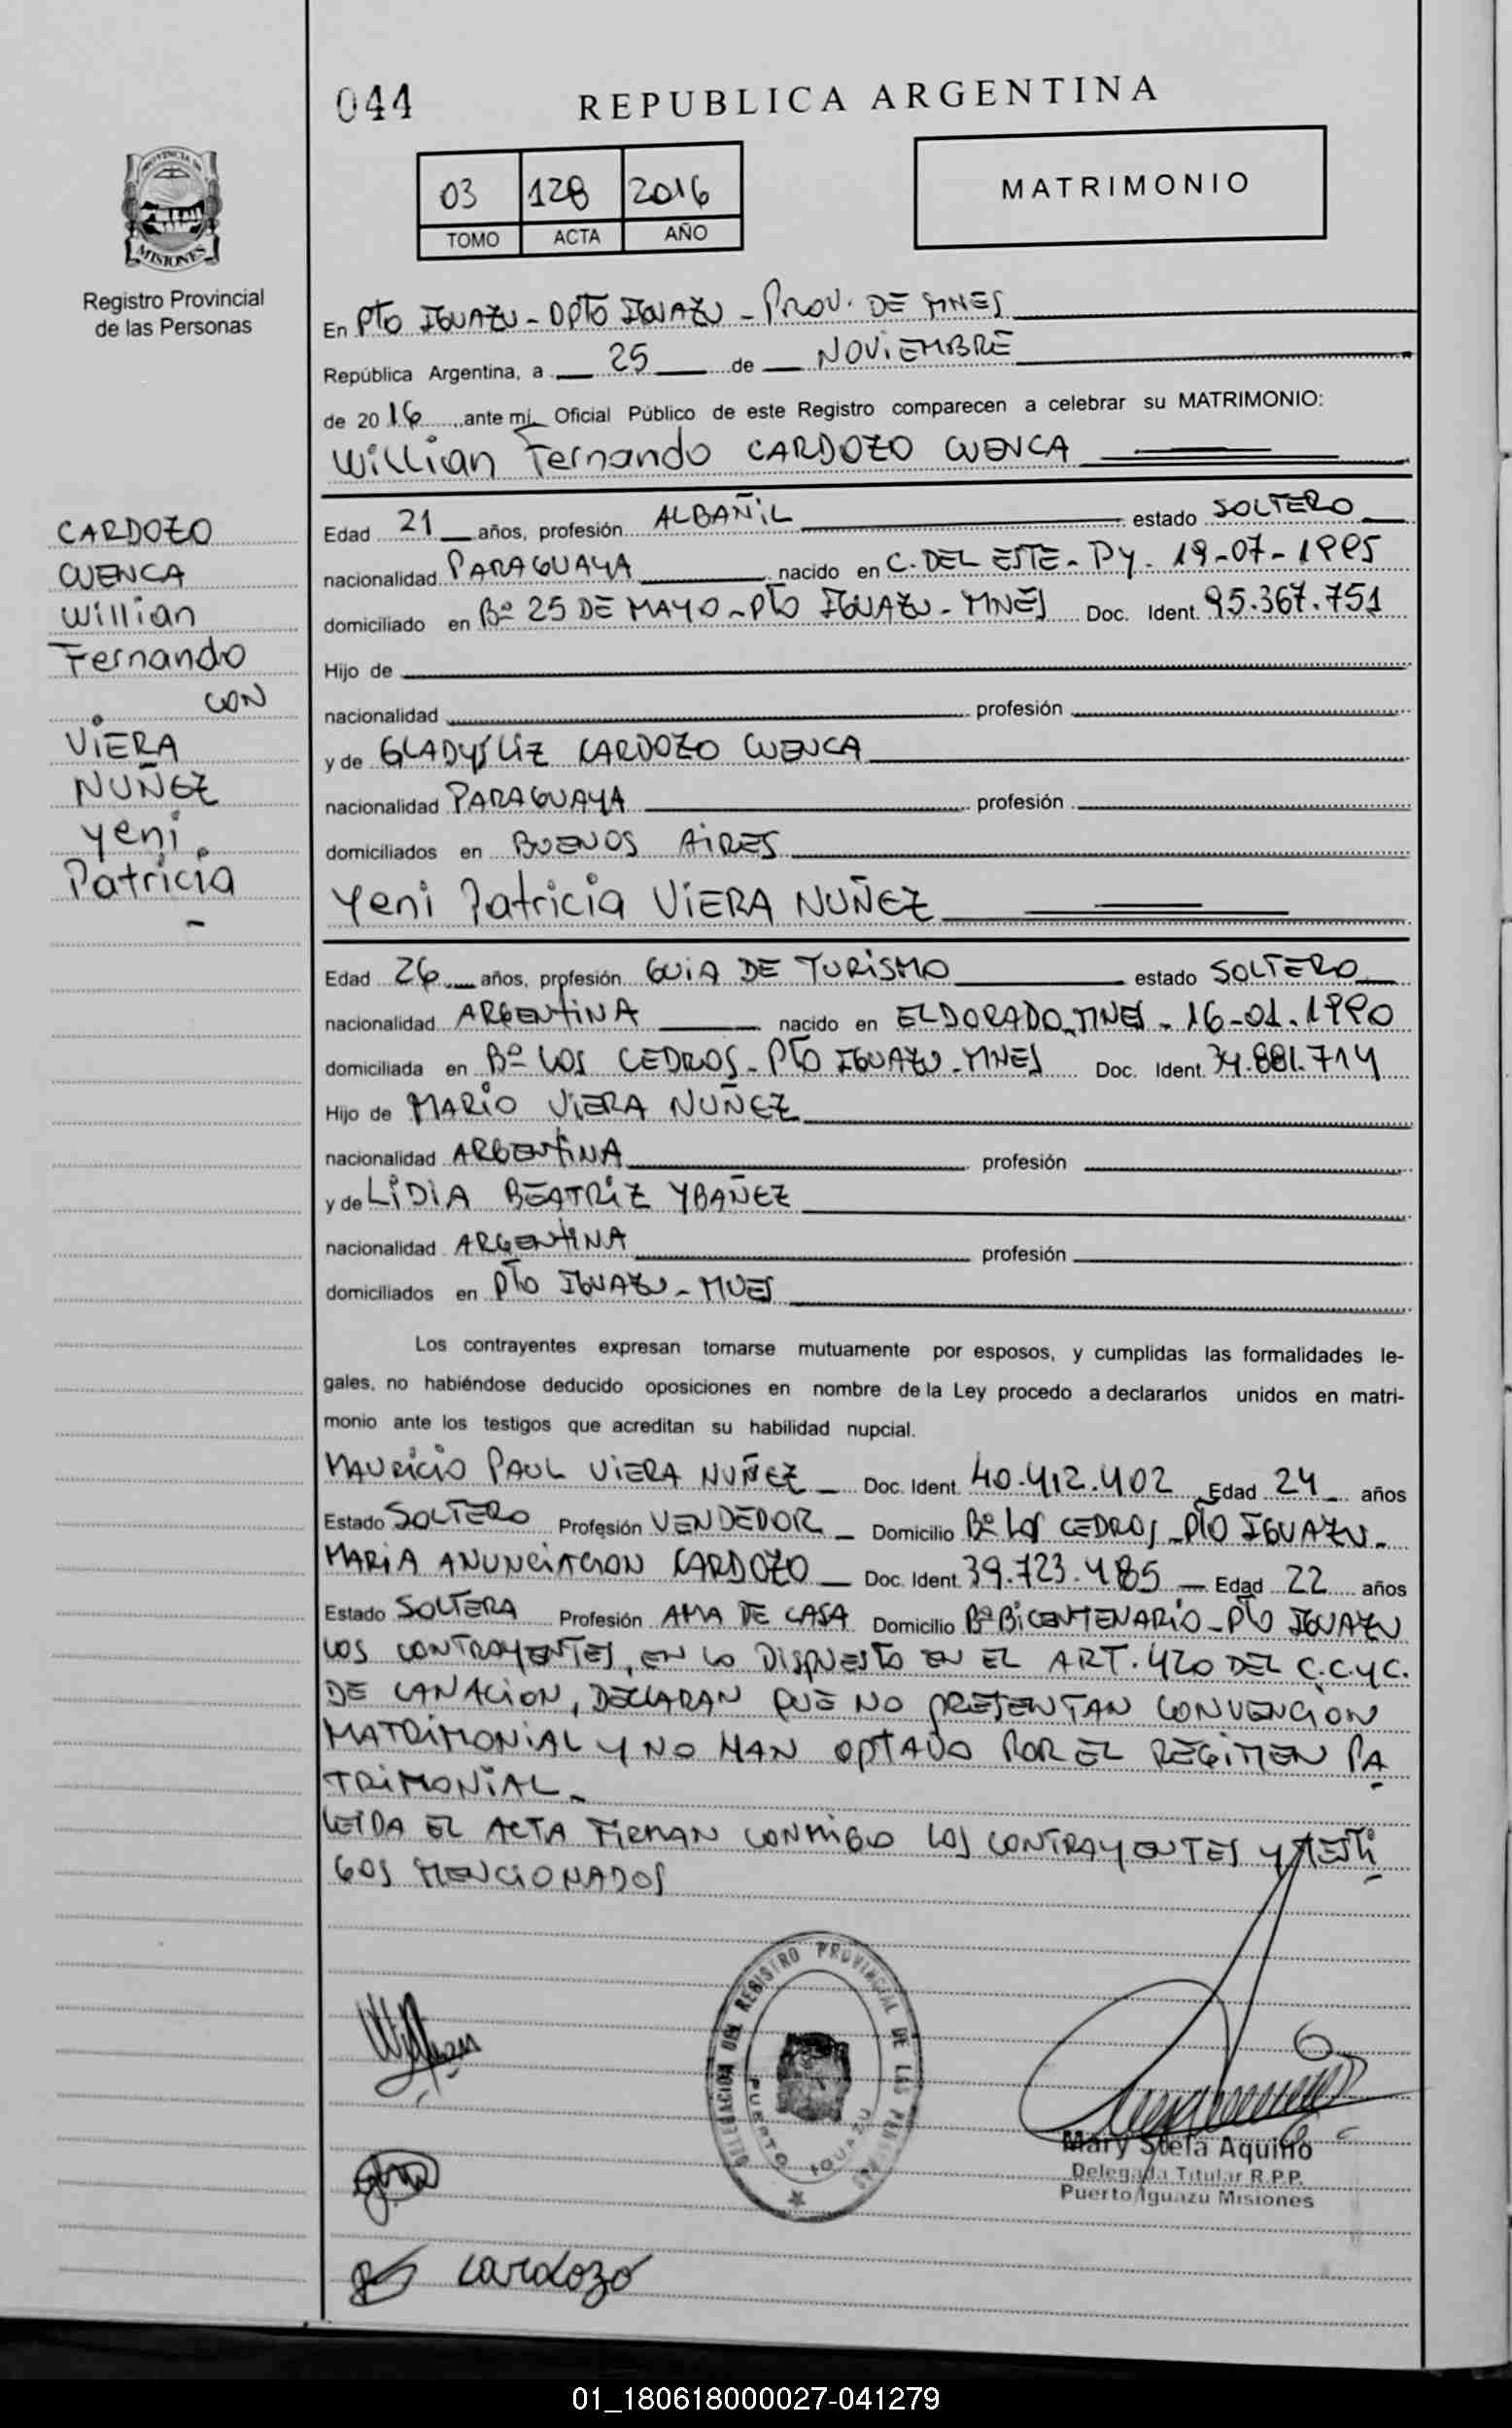 044
REPUBLICA ARGENTINA
03 128 2016
TOMO ACTA AÑO
MATRIMONIO
PROVINCIA DE
MISIONES
Registro Provincial
de las Personas
En PTO IGUAZU - DPTO IGUAZU - PROV. DE MNES
República Argentina, a 25 de NOVIEMBRE
de 2016 ante mí, Oficial Público de este Registro comparecen a celebrar su MATRIMONIO:
Willian Fernando CARDOZO CUENCA
CARDOZO
CUENCA
Willian
Fernando
CON
VIERA
NUÑEZ
Yeni
Patricia
-
Edad 21 años, profesión ALBAÑIL estado SOLTERO
nacionalidad PARAGUAYA nacido en C. DEL ESTE - PY - 19-07-1995
domiciliado en Bº 25 DE MAYO - PTO IGUAZU - MNES Doc. Ident. 95.367.751
Hijo de
nacionalidad profesión
y de GLADYS LIZ CARDOZO CUENCA
nacionalidad PARAGUAYA profesión
domiciliados en BUENOS AIRES
Yeni Patricia VIERA NUÑEZ
Edad 26 años, profesión GUIA DE TURISMO estado SOLTERO
nacionalidad ARGENTINA nacido en ELDORADO-MNES - 16-01-1990
domiciliada en Bº LOS CEDROS - PTO IGUAZU - MNES Doc. Ident. 34.881.714
Hijo de MARIO VIERA NUÑEZ
nacionalidad ARGENTINA profesión
y de LIDIA BEATRIZ YBAÑEZ
nacionalidad ARGENTINA profesión
domiciliados en PTO IGUAZU - MNES
Los contrayentes expresan tomarse mutuamente por esposos, y cumplidas las formalidades le-
gales, no habiéndose deducido oposiciones en nombre de la Ley procedo a declararlos unidos en matri-
monio ante los testigos que acreditan su habilidad nupcial.
MAURICIO PAUL VIERA NUÑEZ Doc. Ident. 40.412.402 Edad 24 años
Estado SOLTERO Profesión VENDEDOR Domicilio Bº LOS CEDROS - PTO IGUAZU -
MARIA ANUNCIACION CARDOZO Doc. Ident. 39.723.485 Edad 22 años
Estado SOLTERA Profesión AMA DE CASA Domicilio Bº BICENTENARIO - PTO IGUAZU
LOS CONTRAYENTES, EN LO DISPUESTO EN EL ART. 420 DEL C.C.Y C.
DE LA NACION, DECLARAN QUE NO PRESENTAN CONVENCION
MATRIMONIAL Y NO HAN OPTADO POR EL REGIMEN PA
TRIMONIAL -
LEIDA EL ACTA FIRMAN CONMIGO LOS CONTRAYENTES Y TESTI
GOS MENCIONADOS
DELEGACION DEL REGISTRO PROVINCIAL DE LAS PERSONAS
PUERTO IGUAZU
Willian
Mary Stela Aquino
Delegada Titular R.P.P.
Puerto Iguazu Misiones
Cardozo
01_180618000027-041279